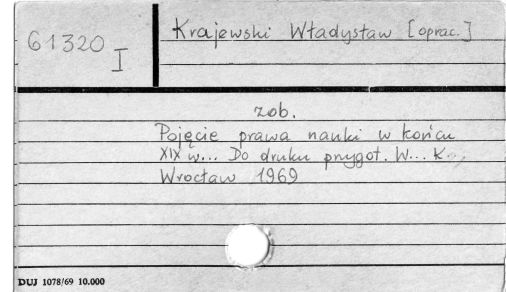 61320
I
Krajewski Władysław [oprac.]
zob.
Pojęcie prawa nauki w końcu
XIX w... Do druku przygot. W... K...
Wrocław 1969
DUJ 1078/69 10.000